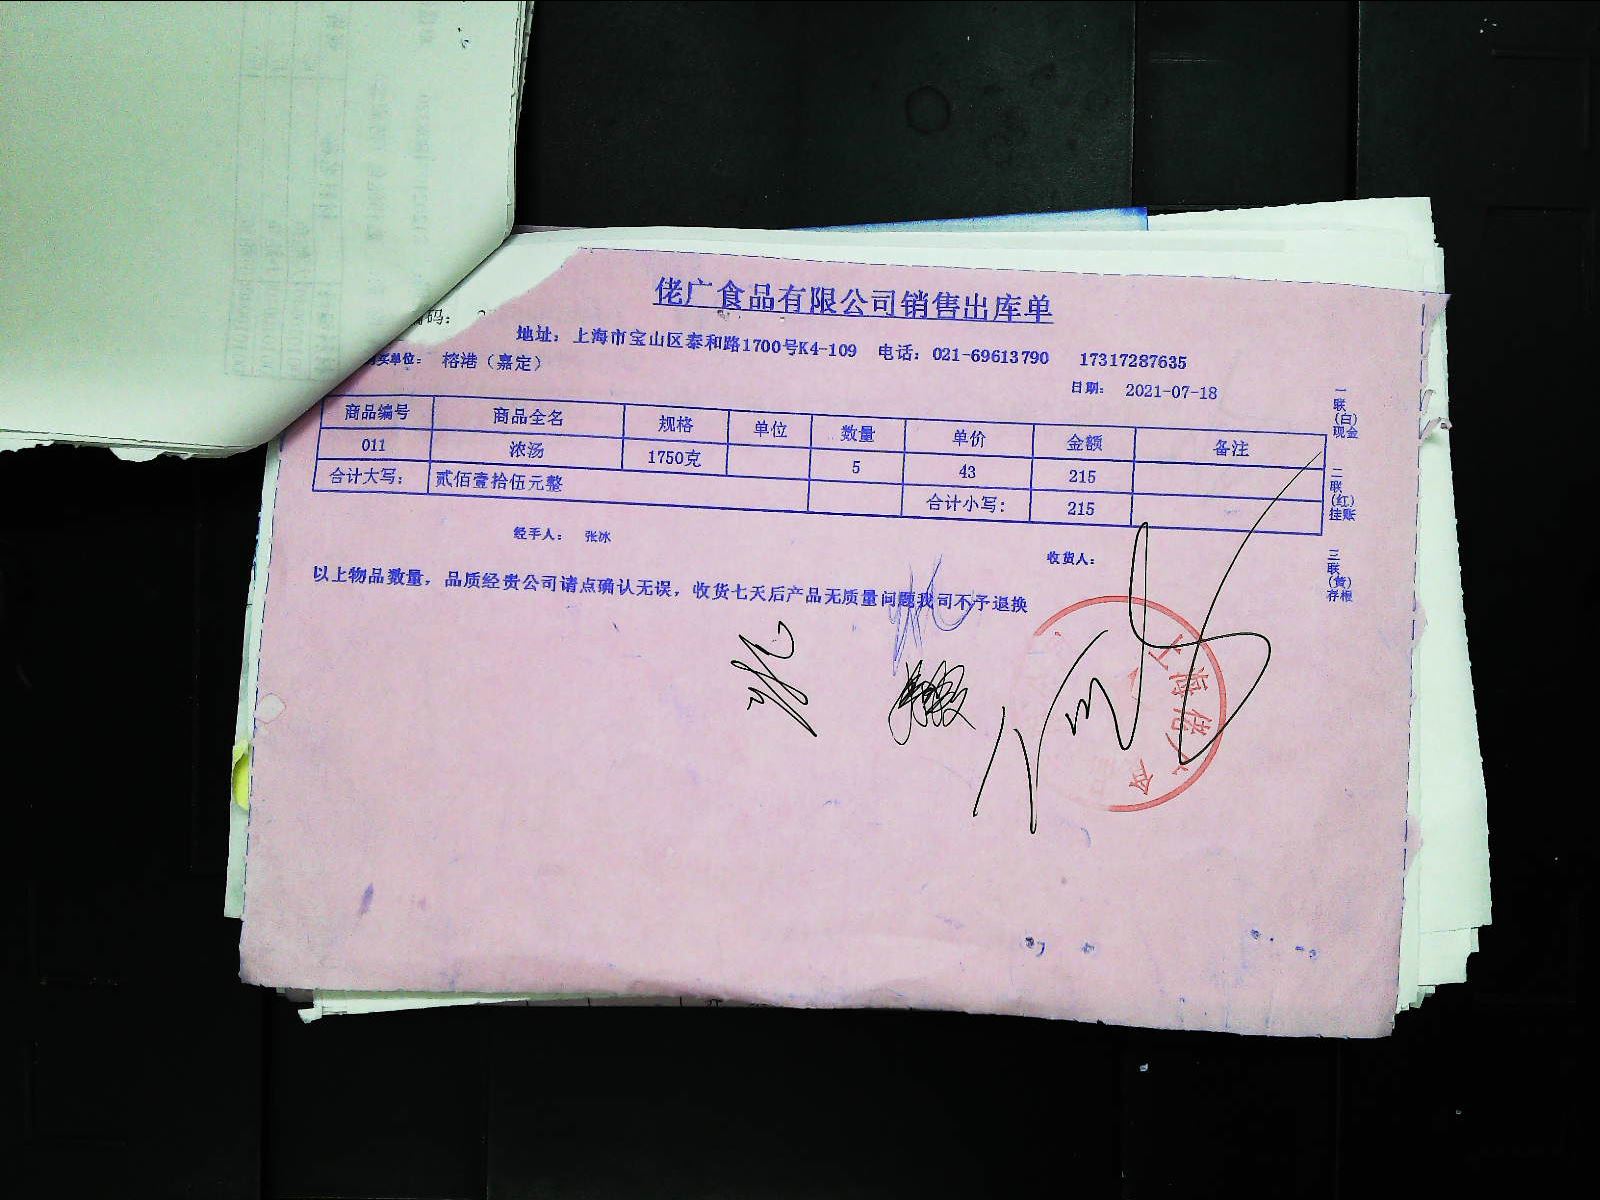 佬广食品有限公司销售出库单
编码：
地址：上海市宝山区泰和路1700号K4-109 电话：021-69613790 17317287635
购买单位： 榕港（嘉定）
日期： 2021-07-18
商品编号 商品全名 规格 单位 数量 单价 金额 备注
011 浓汤 1750克 5 43 215
合计大写： 贰佰壹拾伍元整 合计小写： 215
经手人： 张冰
收货人：
以上物品数量，品质经贵公司请点确认无误，收货七天后产品无质量问题我司不予退换
一联（白）现金
二联（红）挂账
三联（黄）存根